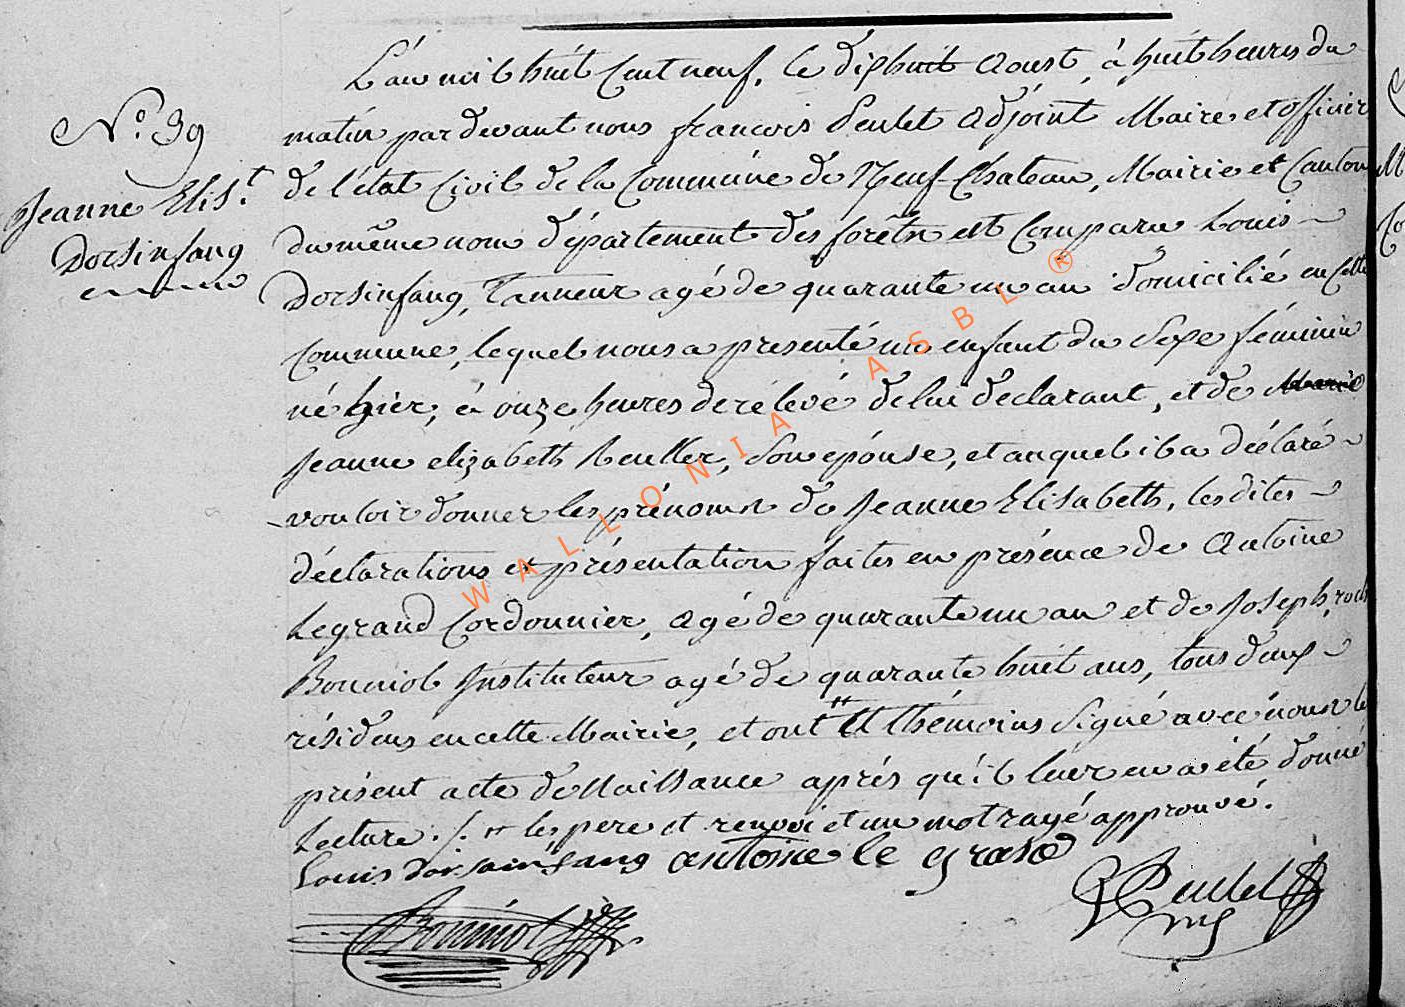 N.° 39
Jeanne Elis.t
Dorsinfang
L'an mil huit Cent neuf, le dixhuit Aoust, à huit heures du
matin par devant nous françois Peulet Adjoint Maire et officier
de l'état Civil de la Commune de Neuf-Chateau, Mairie et Canton
du même nom département des forêts est Comparu Louis
Dorsinfang, Tanneur agé de quarante un an domicilié en Cette
Commune, lequel nous a presenté un enfant du Sexe féminin
né hier, à onze heures de rélevé de lui déclarant, et de Marie
Jeanne elizabeth Reuller, Son epouse, et auquel il a déclaré
vouloir donner les prénoms de Jeanne Elisabeth, les dites
déclarations et présentation faites en présence de Antoine
Legrand Cordonnier, agé de quarante un an et de Joseph, roch
Bonniol Instituteur agé de quarante huit ans, tous deux
résidens en cette Mairie, et ont et thémoins Signé avec nous le
présent acte de Naissance après qu'il léur en a été donné
Lecture ./. les pere et renvoi et un mot rayé approuvé.
Louis dorsainfang antoine le grand
Bonniol
Peulet
WALLONIA ASBL ®